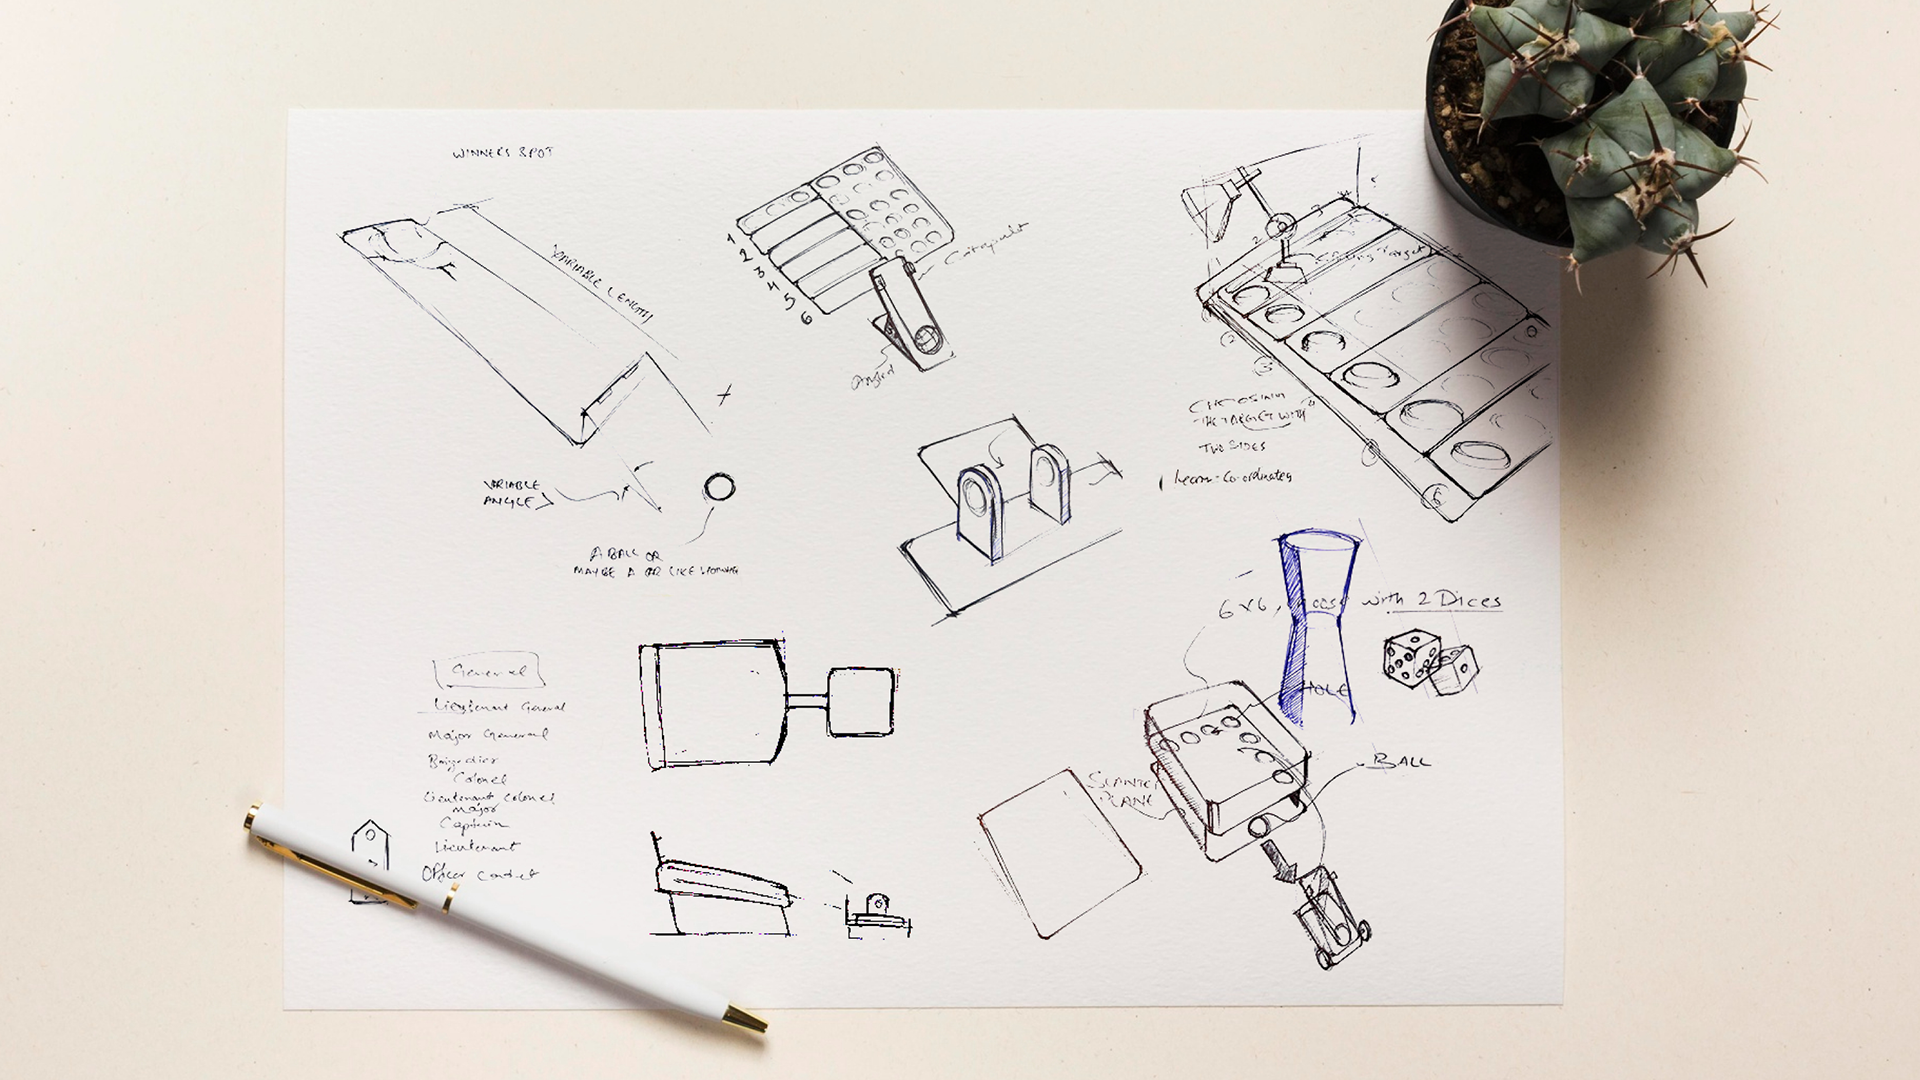 WINNERS SPOT
VARIABLE LENGTH
VARIABLE
ANGLE
A BALL OR
MAYBE A CAR LIKE
1
2
3
4
5
6
Catapult
Angled
CHOOSING
THE TARGET WITH
TWO SIDES
learn co-ordinates
6x6, with 2 Dices
HOLE
BALL
SLANTED
PLANE
General
Lieutenant General
Major General
Brigadier
Colonel
Lieutenant Colonel
Major
Captain
Lieutenant
Officer Cadet